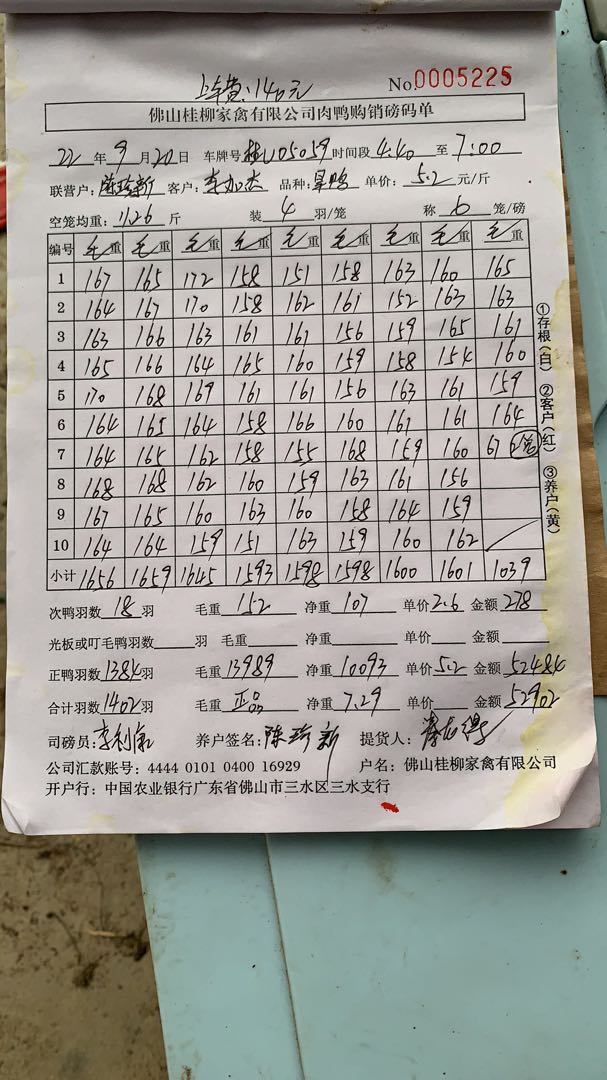 上车费:140元
No.0005225
佛山桂柳家禽有限公司肉鸭购销磅码单
22年9月20日 车牌号 05059 时间段4.40至7:00
联营户:陈珍新 客户:李加杰 品种: 鸭 单价:5.2元/斤
空笼均重:11.26斤 装4羽/笼 称6笼/磅
编号 毛重 毛重 毛重 毛重 毛重 毛重 毛重 毛重 毛重
1 167 165 172 158 151 158 163 160 165
2 164 167 170 158 162 161 152 163 163
3 163 166 163 161 161 156 159 165 161
4 165 166 164 165 160 159 158 154 160
5 170 168 169 161 161 156 163 161 159
6 164 165 164 158 166 160 161 161 164
7 164 165 162 158 155 168 159 160 67
8 168 168 162 160 159 163 161 156
9 167 165 160 163 160 158 164 159
10 164 164 159 151 163 159 160 162
小计 1656 1659 1645 1593 1598 1598 1600 1601 1039
次鸭羽数18羽 毛重152 净重107 单价2.6 金额278
光板或叮毛鸭羽数 羽 毛重 净重 单价 金额
正鸭羽数1384羽 毛重13989 净重10093 单价5.2 金额52484
合计羽数1402羽 毛重正品 净重7.29 单价 金额52902
司磅员: 养户签名:陈珍新 提货人:
公司汇款账号:4444 0101 0400 16929 户名:佛山桂柳家禽有限公司
开户行:中国农业银行广东省佛山市三水区三水支行
①存根(白) ②客户(红) ③养户(黄)